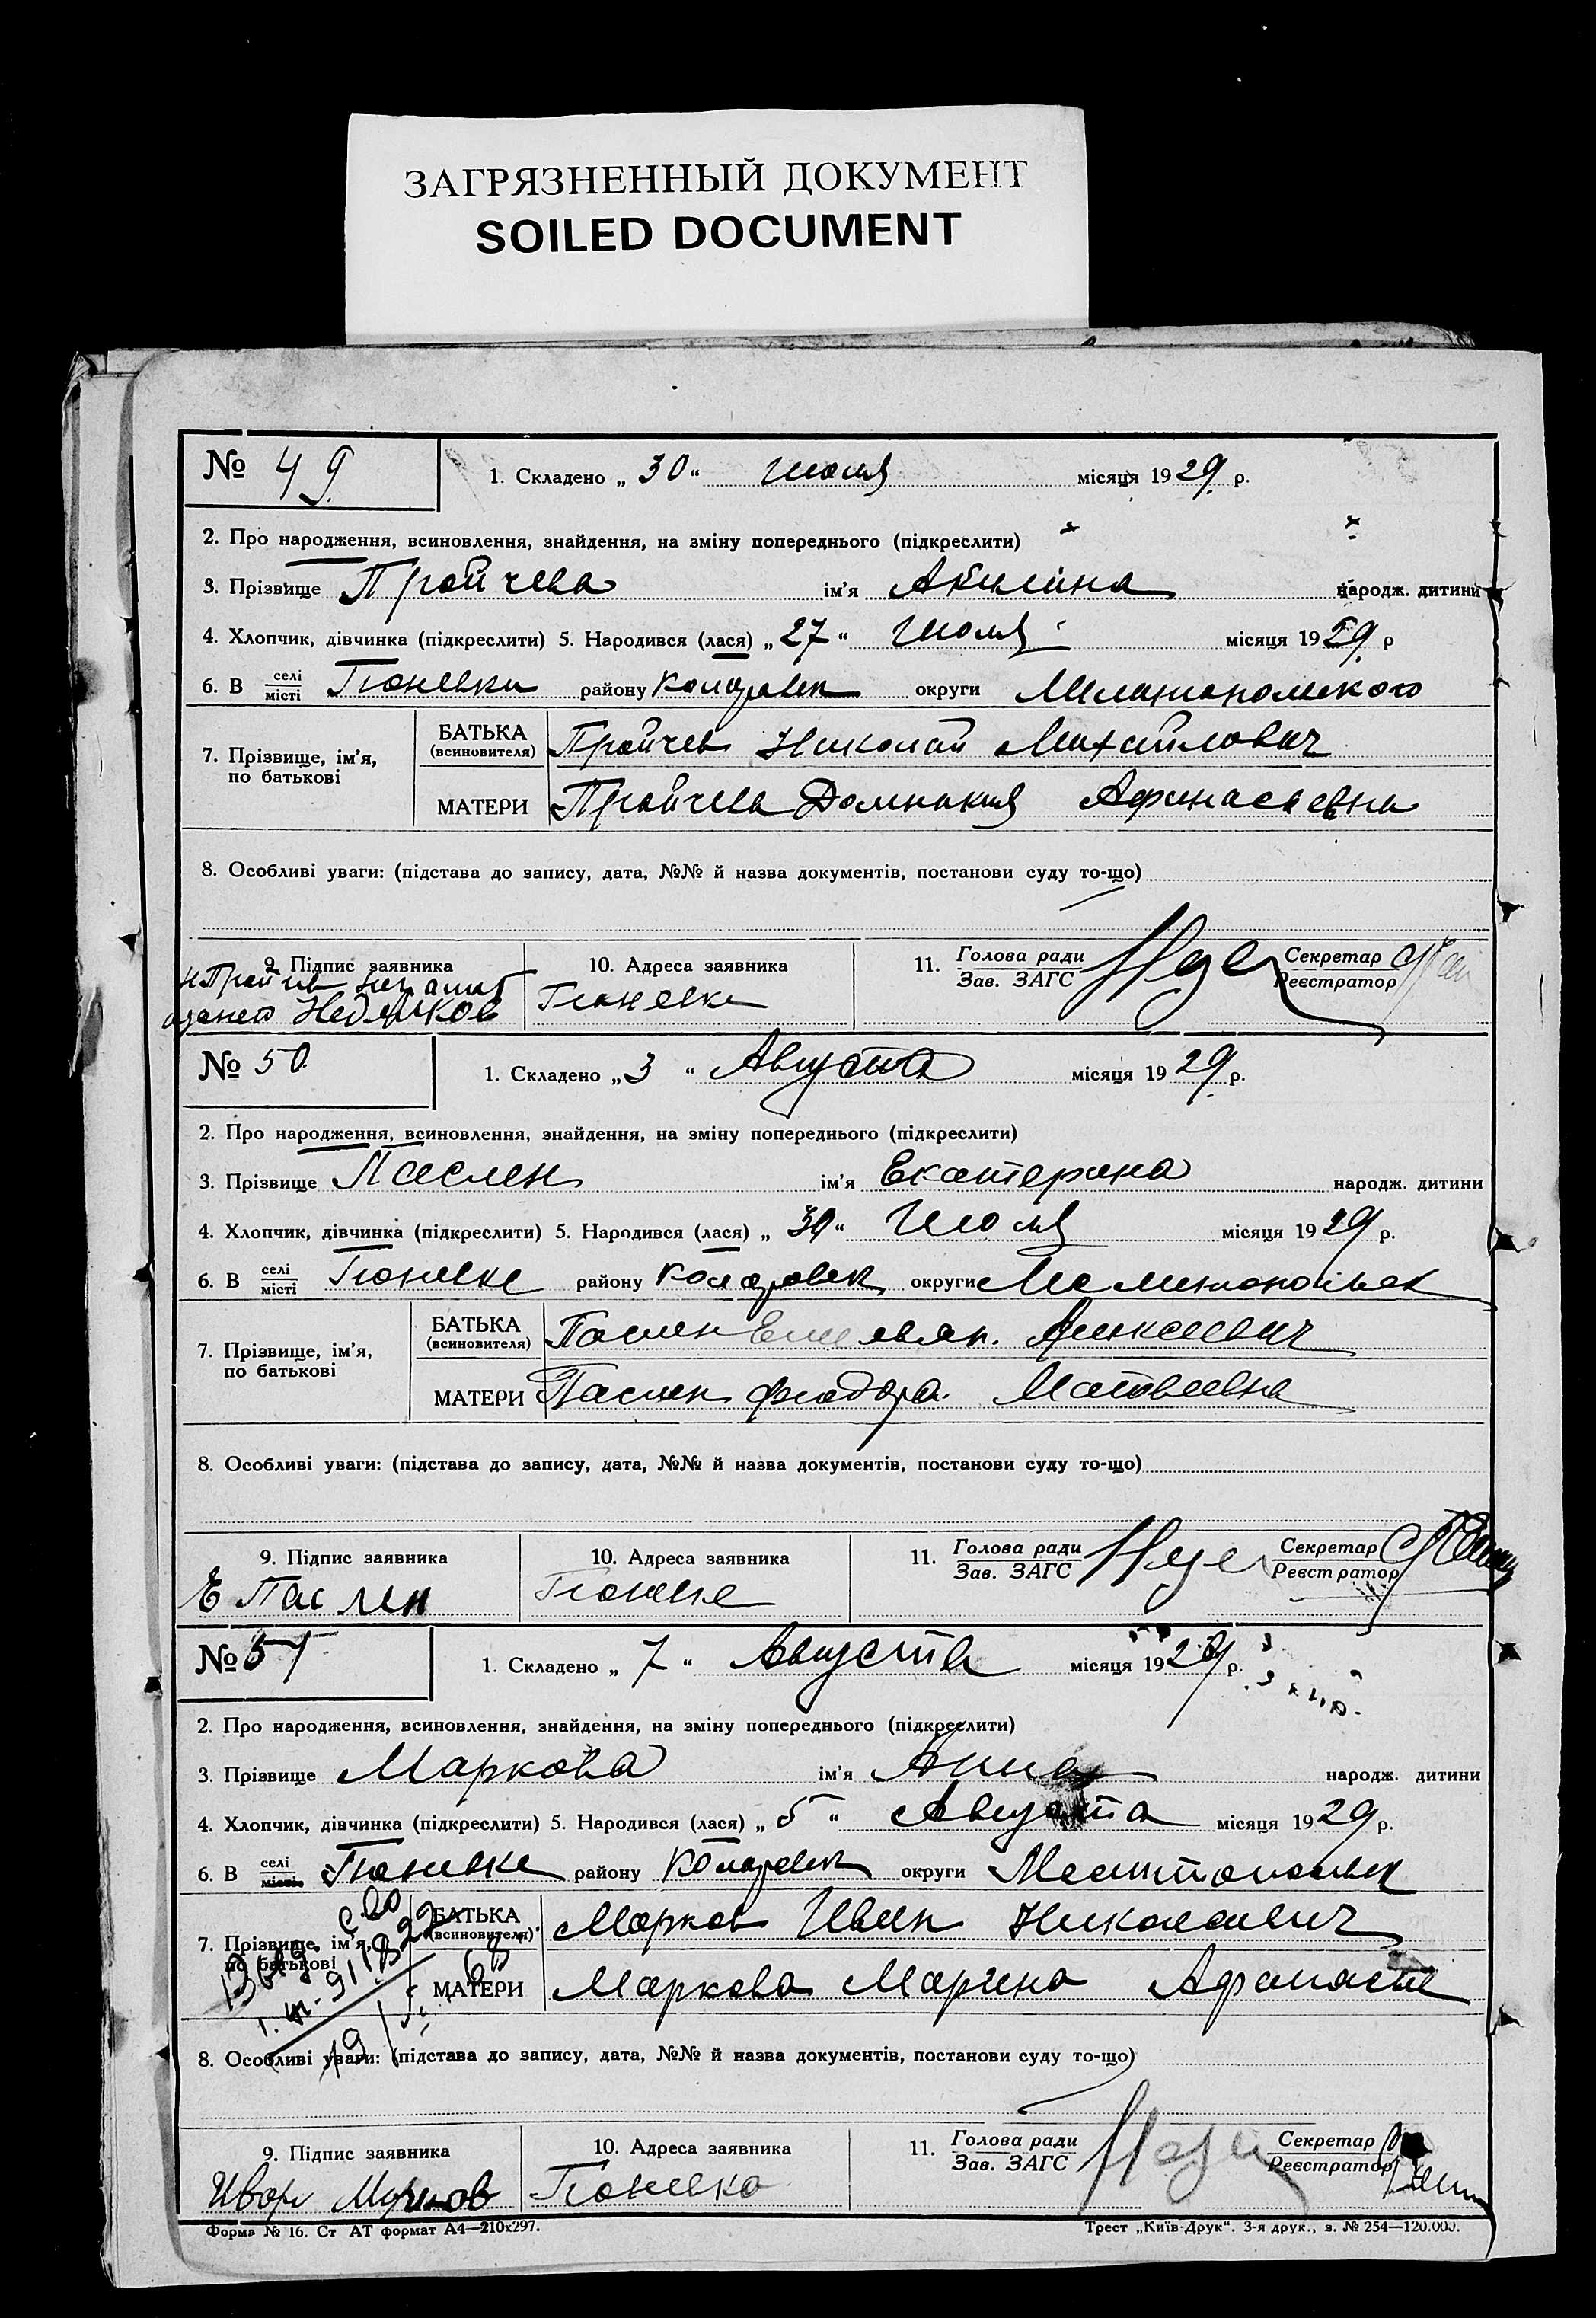 ЗАГРЯЗНЕННЫЙ ДОКУМЕНТ
SOILED DOCUMENT
№ 49.
1. Складено „ 30 “ Июля місяця 1929. р.
2. Про народження, всиновлення, знайдення, на зміну попереднього (підкреслити)
3. Прізвище Пройчева ім'я Акилина народж. дитини
4. Хлопчик, дівчинка (підкреслити) 5. Народився (лася) „ 27 “ Июля місяця 1929. р
6. В селі місті Гюневки району Коларовск округи Мелитопольского
7. Прізвище, ім'я, по батькові
БАТЬКА (всиновителя) Пройчев Николай Михайлович
МАТЕРИ Пройчева Домникия Афанасьевна
8. Особливі уваги: (підстава до запису, дата, №№ й назва документів, постанови суду то-що)
9. Підпис заявника
Недялков
10. Адреса заявника
Гюневка
11. Голова ради Зав. ЗАГС
Секретар Реєстратор
№ 50.
1. Складено „ 3 “ Августа місяця 1929. р.
2. Про народження, всиновлення, знайдення, на зміну попереднього (підкреслити)
3. Прізвище Паслен ім'я Екатерина народж. дитини
4. Хлопчик, дівчинка (підкреслити) 5. Народився (лася) „ “ Июля місяця 1929 р.
6. В селі місті Гюневке району Коларовск округи Мелитопольск
7. Прізвище, ім'я, по батькові
БАТЬКА (всиновителя) Паслен Емельян. Алексеевич
МАТЕРИ Паслен Феодора. Матвеевна
8. Особливі уваги: (підстава до запису, дата, №№ й назва документів, постанови суду то-що)
9. Підпис заявника
Е Паслен
10. Адреса заявника
Гюневке
11. Голова ради Зав. ЗАГС
Секретар Реєстратор
№ 51
1. Складено „ 7 “ Августа місяця 1929 р.
2. Про народження, всиновлення, знайдення, на зміну попереднього (підкреслити)
3. Прізвище Маркова ім'я Анна народж. дитини
4. Хлопчик, дівчинка (підкреслити) 5. Народився (лася) „ 5 “ Августа місяця 1929 р.
6. В селі місті Гюневке району Коларовск округи Мелитопольск
7. Прізвище, ім'я, по батькові
БАТЬКА (всиновителя) Марков Иван Николаевич
МАТЕРИ Маркова Марина
8. Особливі уваги: (підстава до запису, дата, №№ й назва документів, постанови суду то-що)
9. Підпис заявника
10. Адреса заявника
Гюневка
11. Голова ради Зав. ЗАГС
Секретар Реєстратор
Форма № 16. Ст АТ формат А4—210х297.
Трест „Київ-Друк“. 3-я друк., з. № 254—120.000.